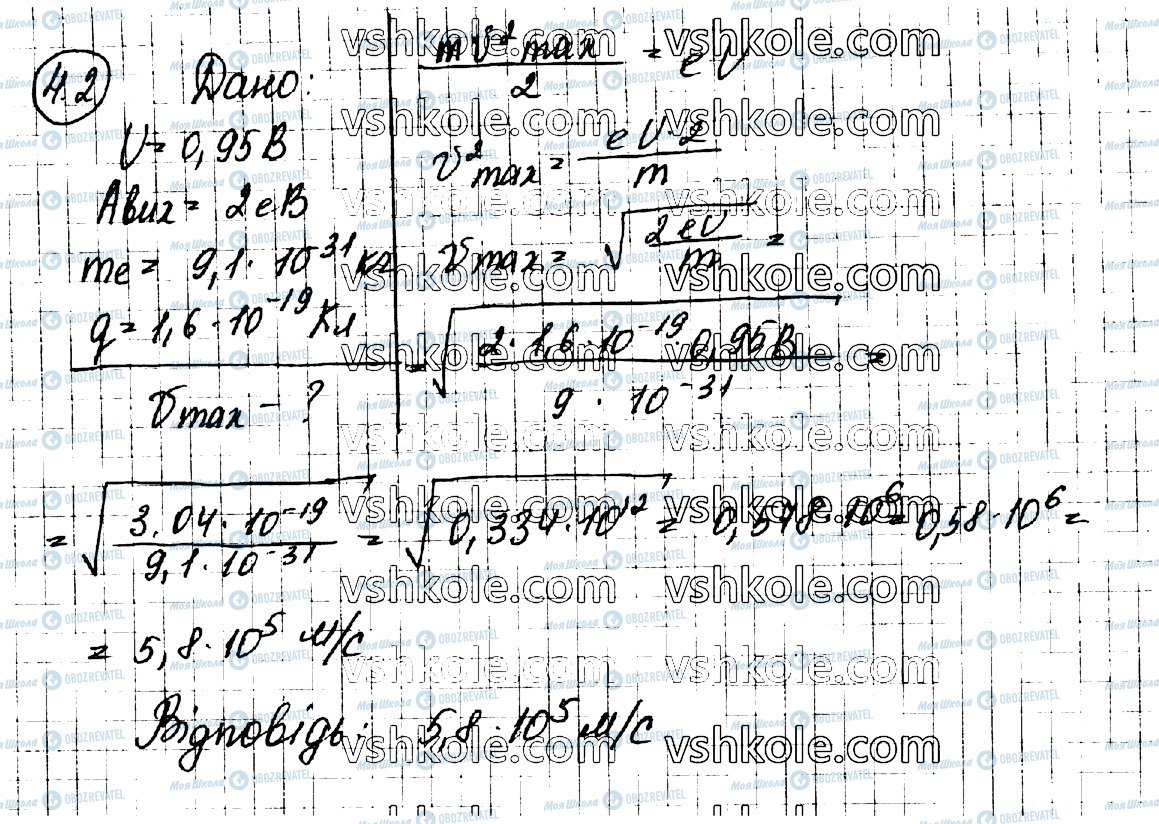 4.2 Дано:
U = 0,95 В
Aвих = 2 еВ
me = 9,1 · 10^31 кг
q = 1,6 · 10^-19 Кл
υmax - ?
mυ²max / 2 = eU
υ²max = eU·2 / m
υmax = √(2eU / m) =
= √(2 · 1,6 · 10^-19 · 0,95 В / 9 · 10^-31) =
= √(3.04 · 10^-19 / 9,1 · 10^-31) = √(0,334 · 10^12) = 0,578 · 10^6 = 0,58 · 10^6 =
= 5,8 · 10^5 м/с
Відповідь: 5,8 · 10^5 м/с
vshkole.com
Моя Школа OBOZREVATEL